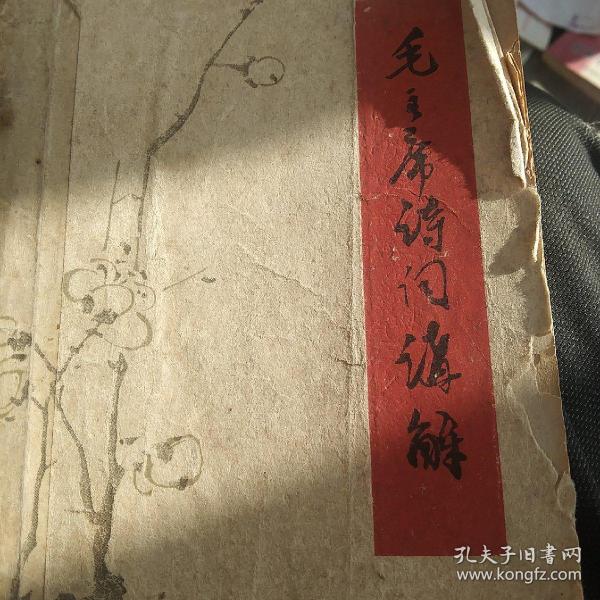 毛主席诗词講解
孔夫子旧書网
www.kongfz.com